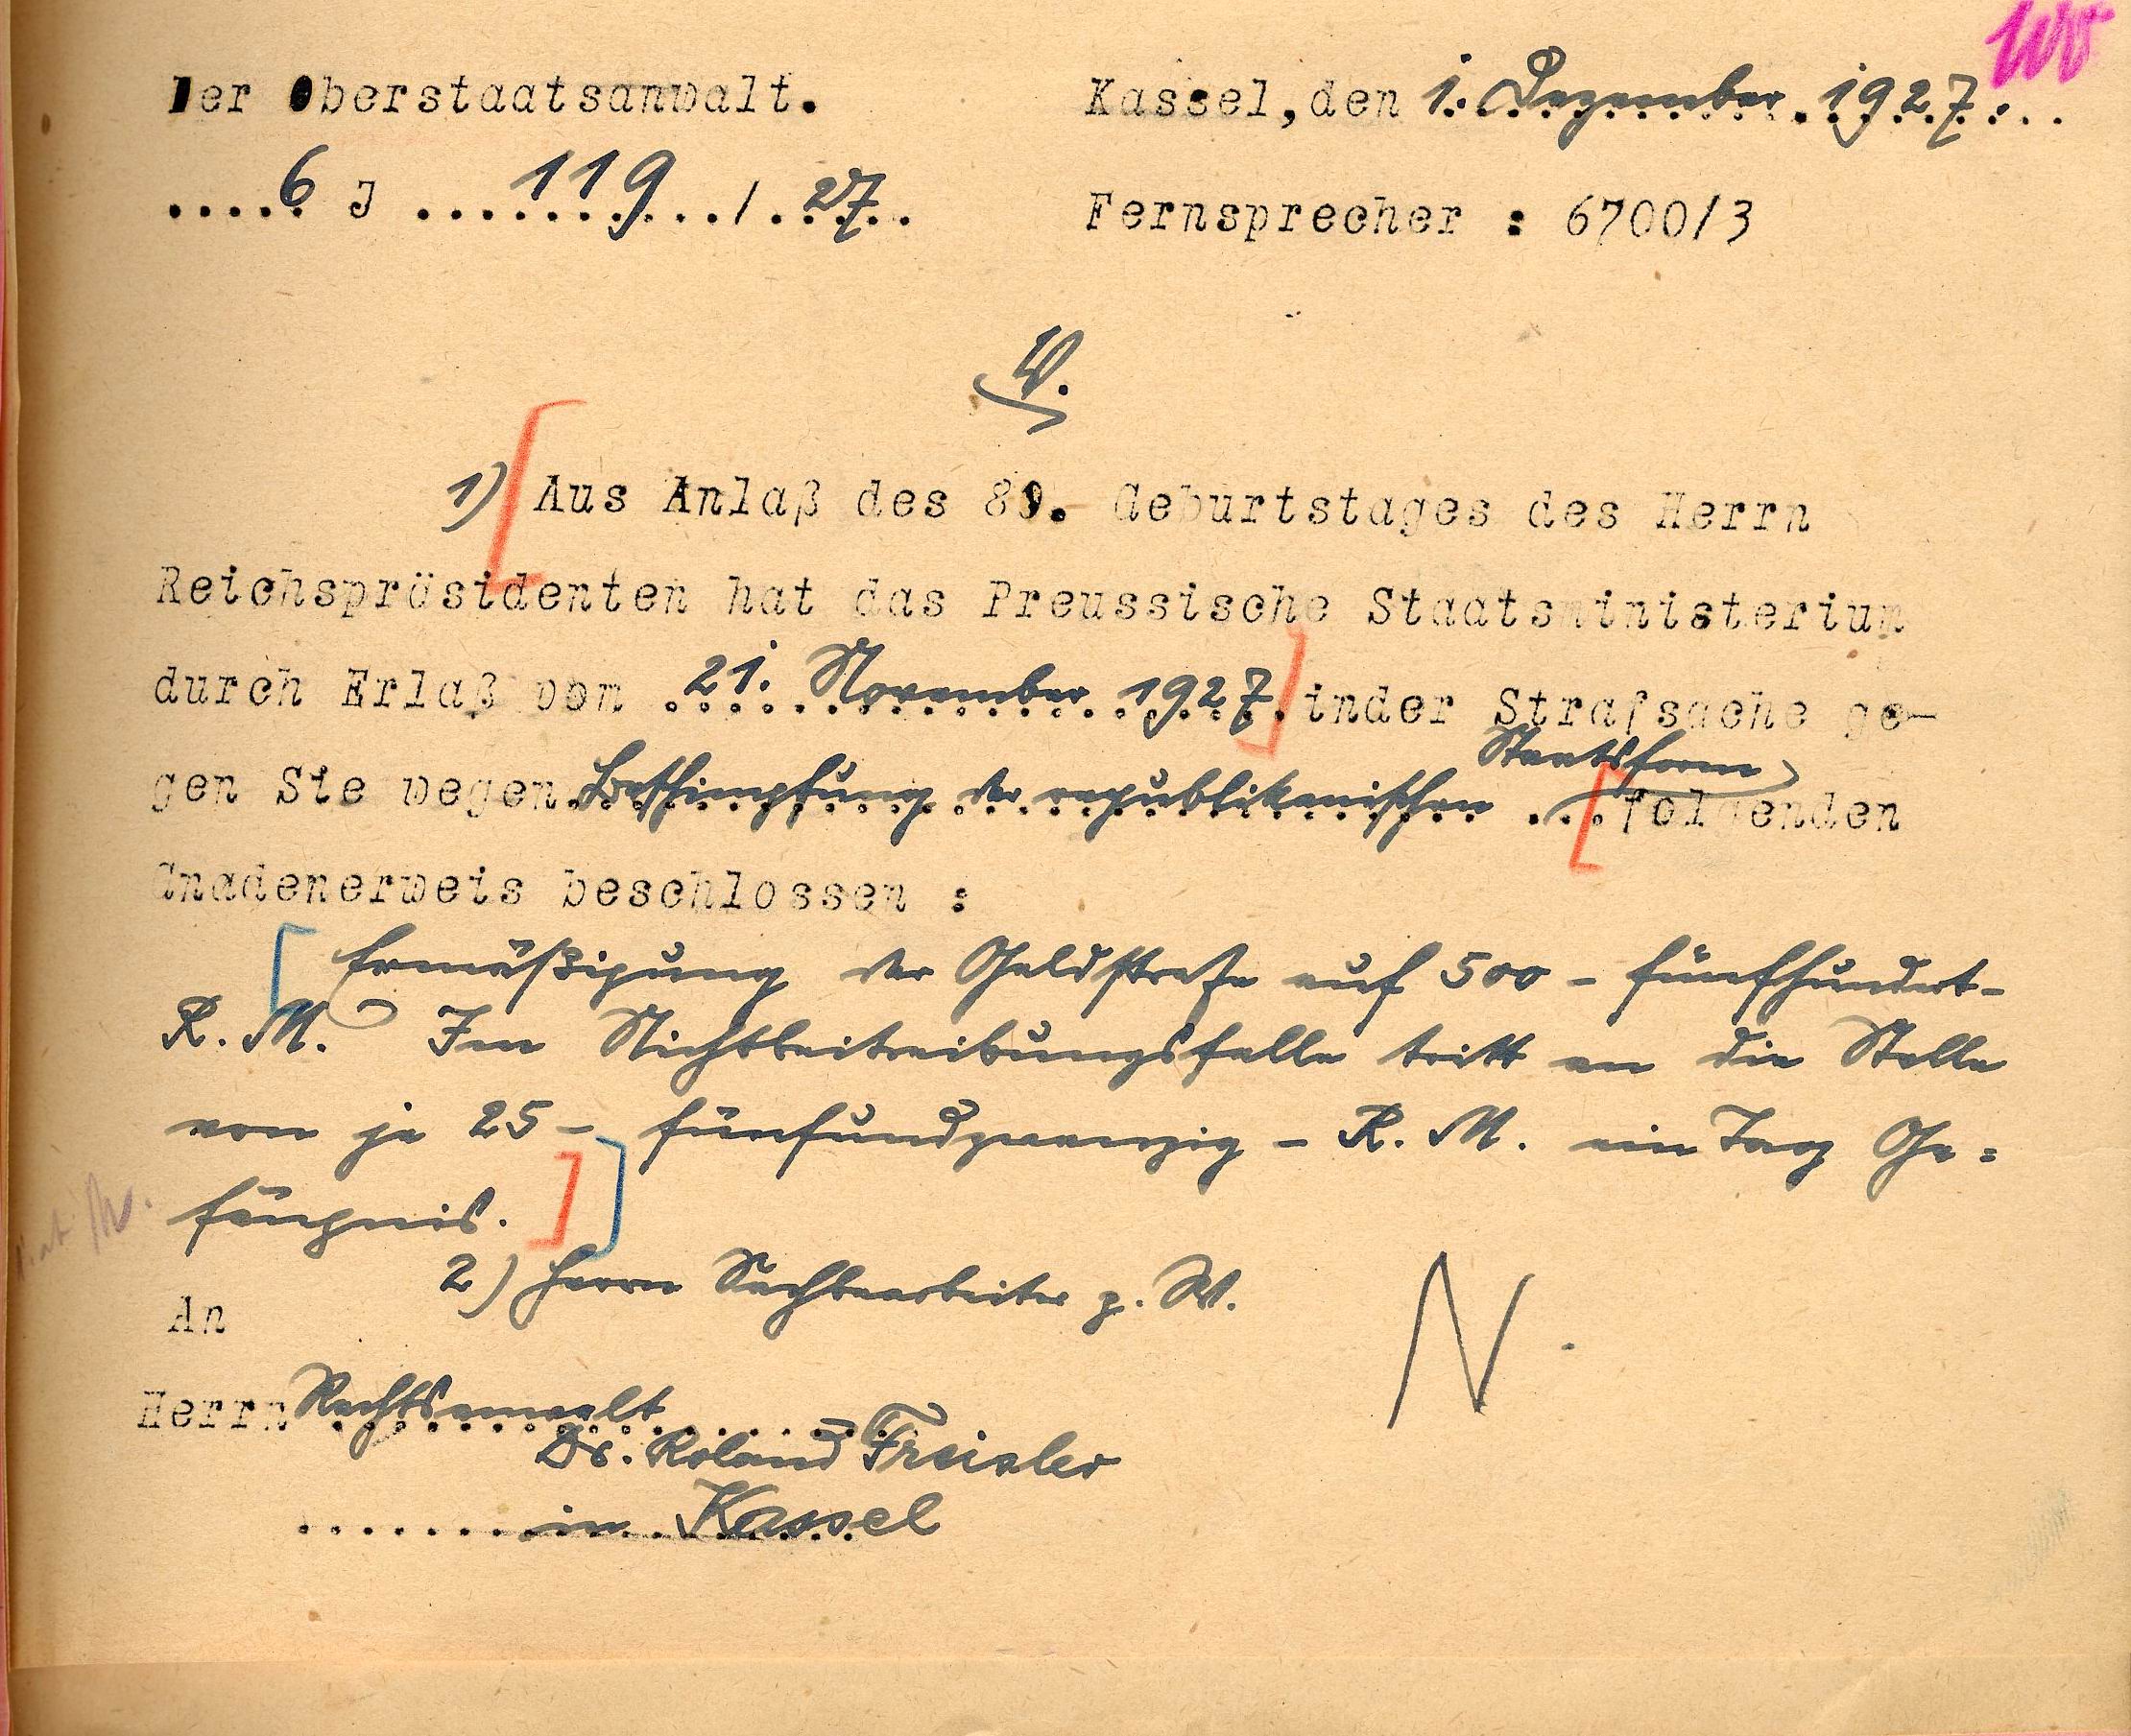 Der Oberstaatsanwalt.
Kassel, den 1. Dezember 1927.
6 J 119 / 27
Fernsprecher : 6700/3
V.
1) Aus Anlaß des 80. Geburtstages des Herrn
Reichspräsidenten hat das Preussische Staatsministerium
durch Erlaß vom 21. November 1927 inder Strafsache ge-
gen Sie wegen Beschimpfung der republikanischen Staatsform folgenden
Gnadenerweis beschlossen :
Ermäßigung der Geldstrafe auf 500 - fünfhundert-
R. M. Im Nichtbeitreibungsfalle tritt an die Stelle
von je 25 - fünfundzwanzig - R. M. ein Tag Ge=
fängnis.
2) Herrn Sachbearbeiter z. W.
An
Herrn Rechtsanwalt
Dr. Roland Freisler
in Kassel
N.